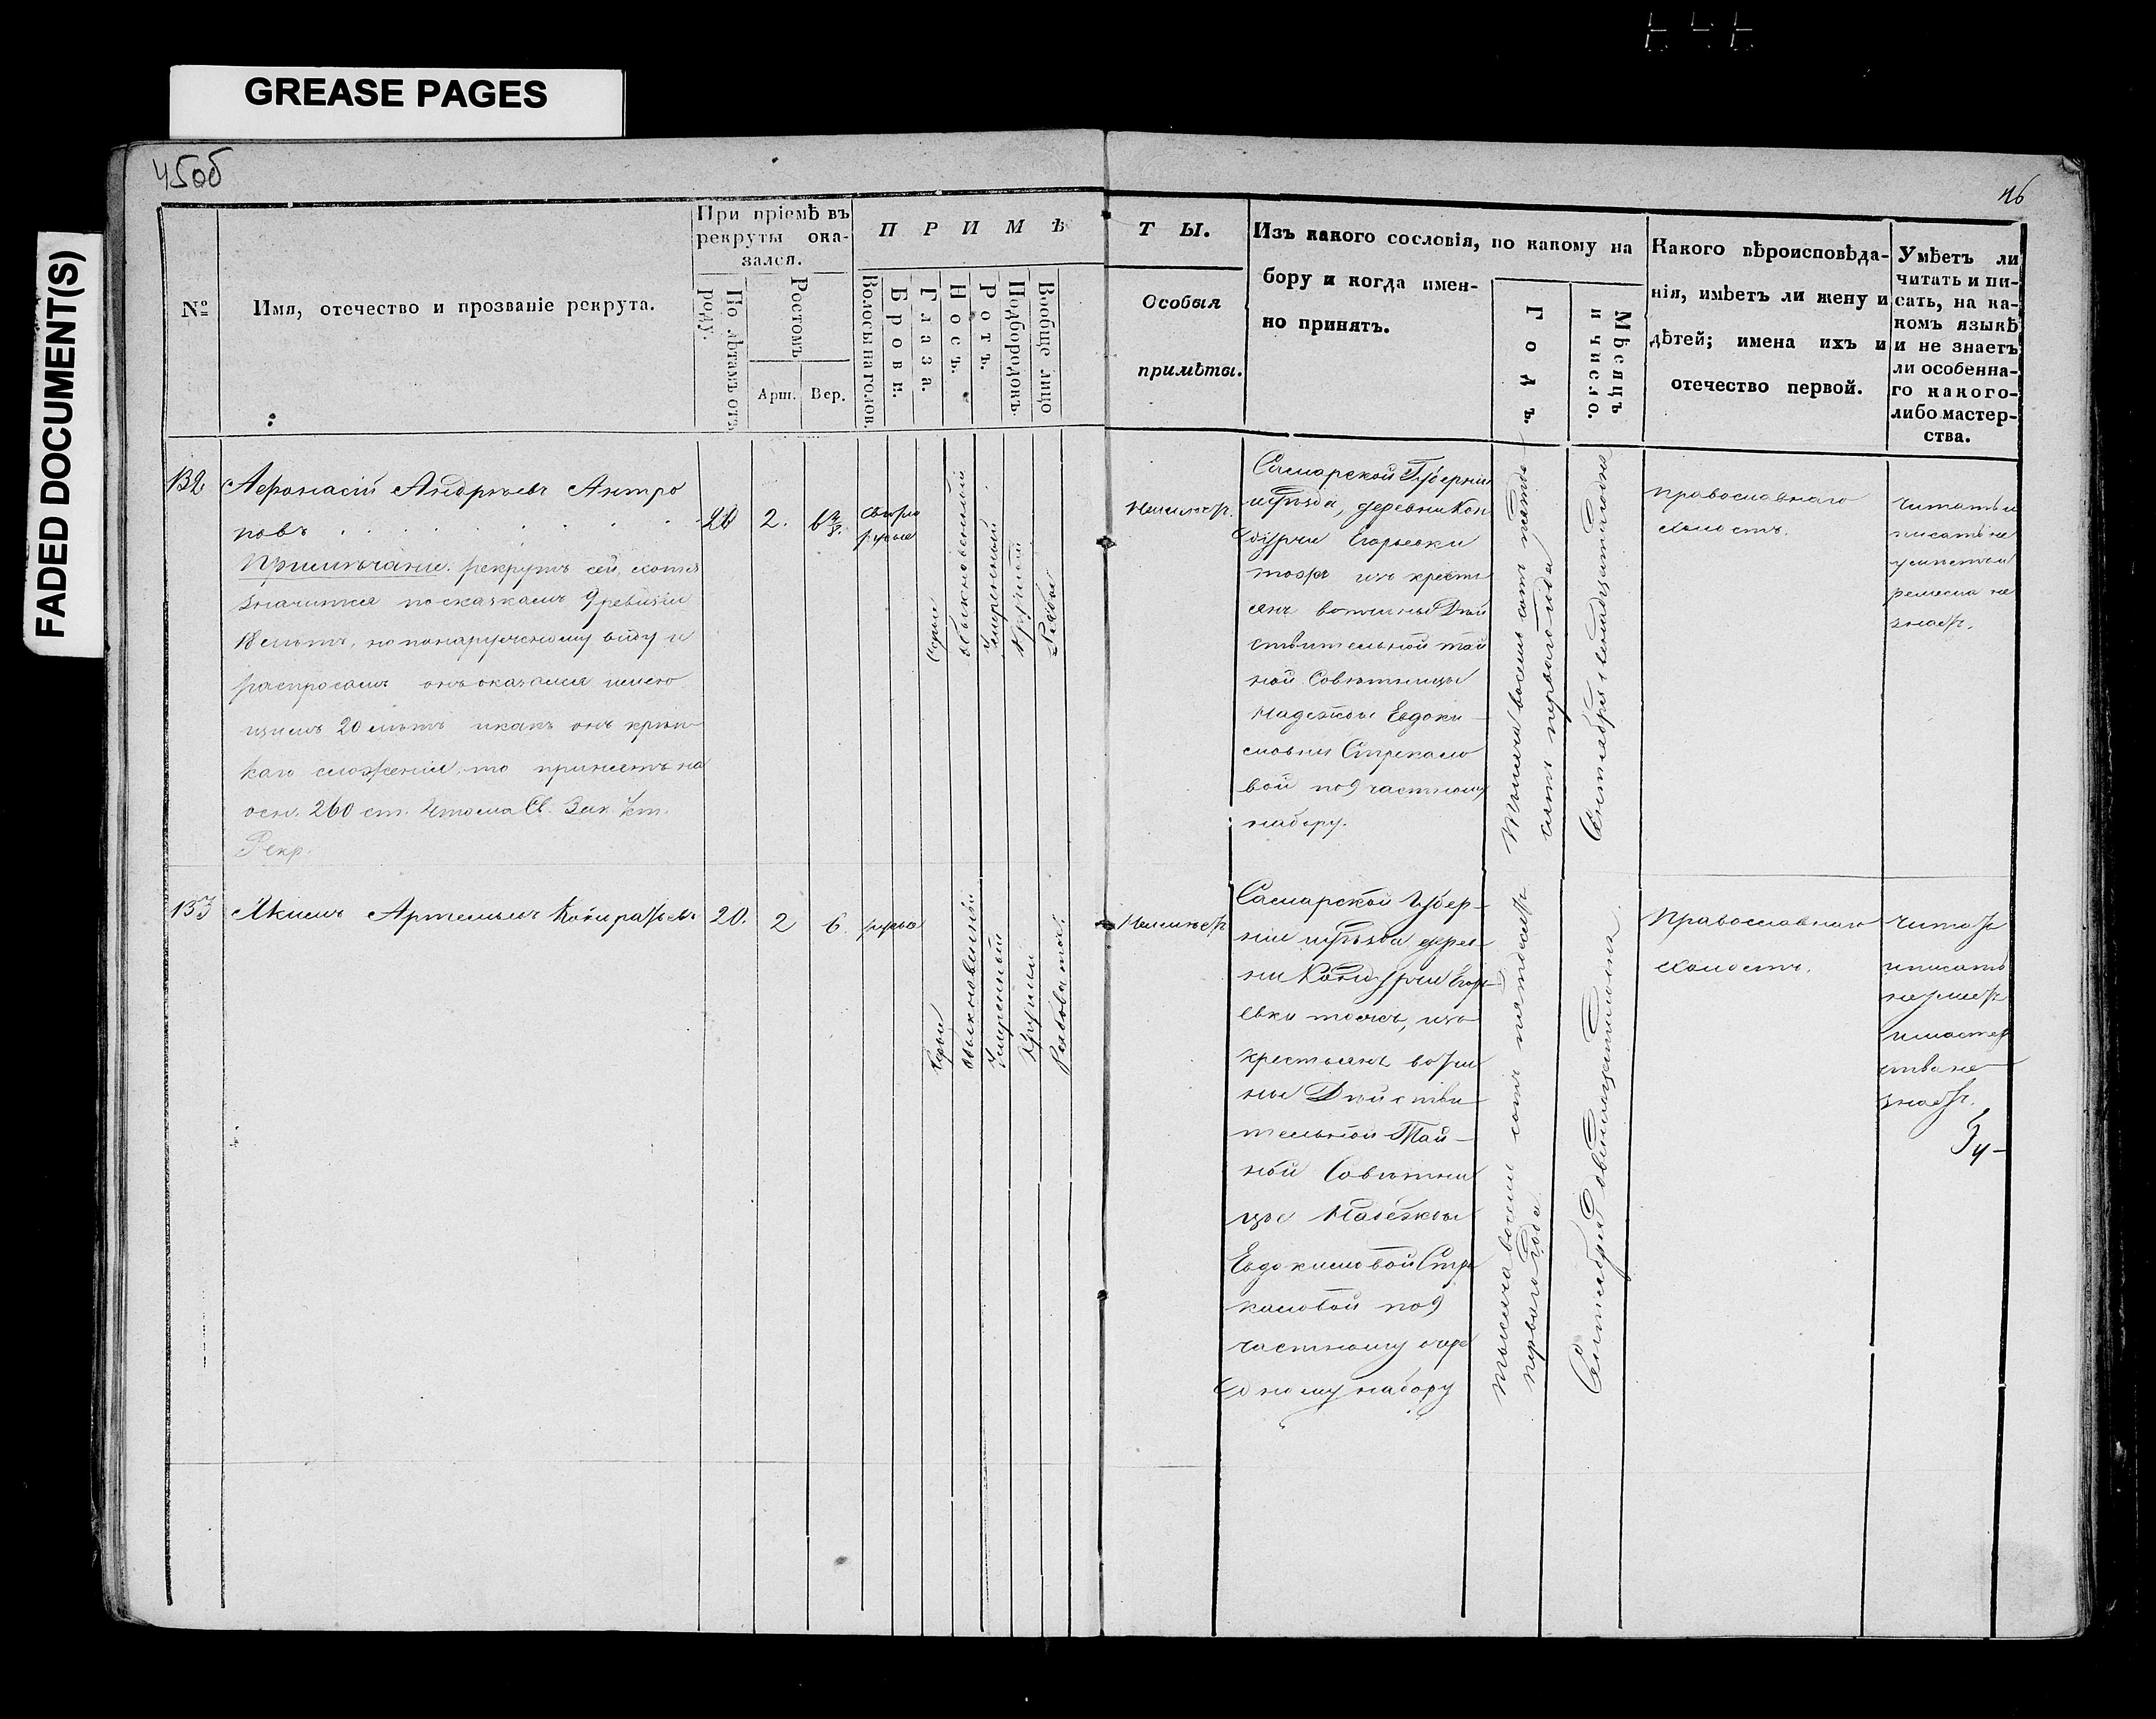 GREASE PAGES
FADED DOCUMENT(S)
45об
46
№
Имя, отечество и прозваніе рекрута.
При пріемѣ въ
рекруты ока-
зался.
По лѣтамъ отъ
роду.
Ростомъ
Арш.
Вер.
ПРИМѢ
Волосы на голов.
Брови.
Глаза.
Носъ.
Ротъ.
Подбородокъ.
Вообще лицо
ТЫ.
Особыя
примѣты.
Изъ какого сословія, по какому на
бору и когда имен-
но принятъ.
Годъ.
Мѣсяцъ
и число.
Какого вѣроисповѣда-
нія, имѣетъ ли жену и
дѣтей; имена ихъ и
отечество первой.
Умѣетъ ли
читать и пи-
сать, на ка-
комъ языкѣ
и не знаетъ
ли особенна-
го какого-
либо мастер-
ства.
132
Афонасій Андреевъ Антро
повъ
Примѣчаніе. рекрутъ сей, хотя
значится по сказкамъ 9 ревизіи
18 лѣтъ, но по наружному виду и
распросамъ онъ оказался имею
щимъ 20 лѣтъ и какъ онъ крѣп
каго сложенія, то принятъ на
осн. 260 ст. 4 тома Св. Зак. Уст.
Рекр.
20
2.
6 3/8.
свѣтло
русые
Серые
обыкновенный
умеренный
круглый
Неимѣетъ.
Самарской Губерніи
уѣзда, деревни Кон
Егорьевки
тожъ изъ кресть
янъ вотчины Дѣй
ствительной тай
ной Совѣтницы
Надежды Евдоки-
мовны Стрекало
вой по 9 частному
набору.
Тысяча восемь сотъ пятьде-
сятъ перваго года
Православнаго
холостъ.
Читать и
писать не
ремесла не
знаетъ.
133
Якимъ Артемьевъ
20.
2
6.
русые
Серые
обыкновенный
Умеренный
Круглый
Рябоватое.
Неимѣетъ
Самарской Губер-
ніи уѣзда дерев-
ни Егорь-
евки тожъ, изъ
крестьянъ вотчи
ны Дѣйстви-
тельной Тай-
ной Совѣтни
цы Надежды
Евдокимовой Стре
каловой по 9
частному очере
дному набору
тысяча восемь сотъ пятьдесятъ
перваго года
Православнаго
холостъ.
Читать
и писать
не умѣетъ
и мастер
ства не
знаетъ.